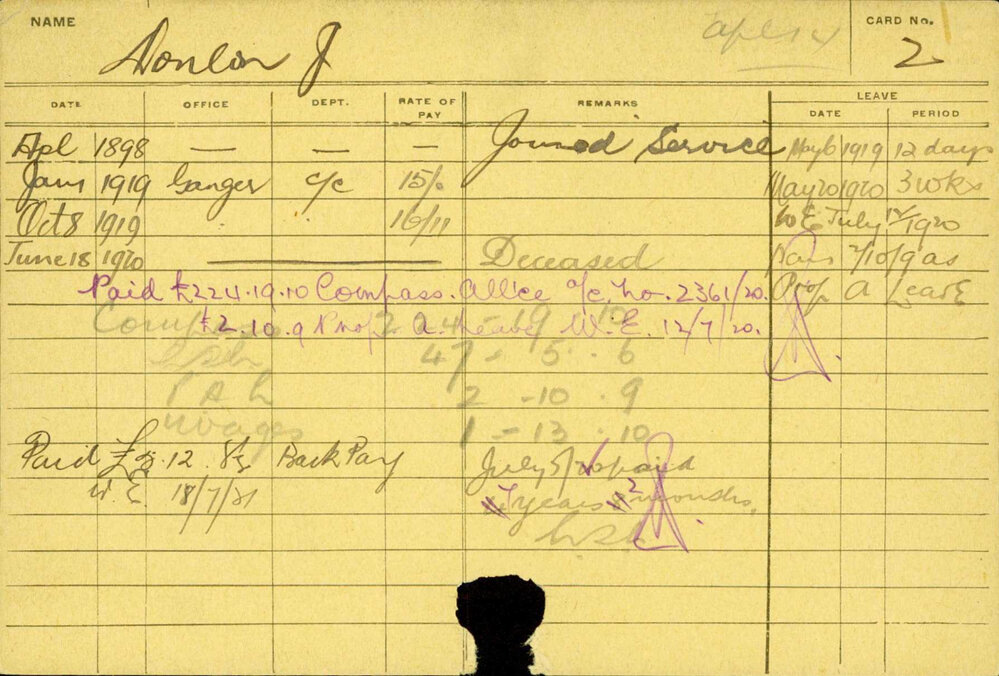 NAME
Donlon J
CARD No.
2
DATE OFFICE DEPT. RATE OF PAY REMARKS LEAVE
DATE PERIOD
Apl 1898 — — — Joined Service May 6 1919 12 days
Jany 1919 Ganger c/c 15/- May 20 1920 3 wks
Oct 8 1919 16/11 W E July 12/1920
June 18 1920 Deceased 2/10/9 as
Paid £224.19.10 Compass. Allce a/c. No. 2361/20. Prop A Leave
£2.10.9 Prop. A. Leave W.E. 12/7/20.
Compass 224 - 19 - 10
47 - 5 . 6
P A L 2 - 10 . 9
Wages 1 - 13 . 10
Paid 12 . Back Pay July
W.E. 18/7/21 7 years 2 months.